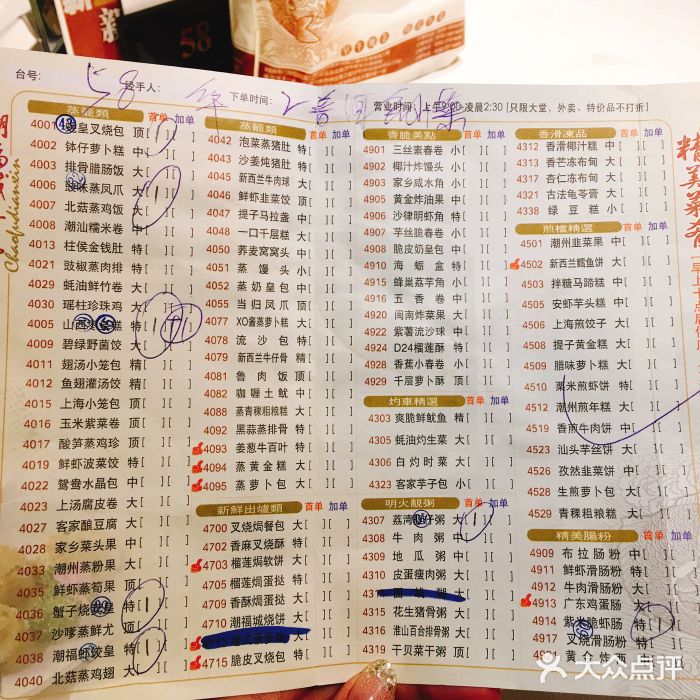 58
台号: 58 经手人: 下单时间: 2 营业时间: 上午9:00-凌晨2:30 [只限大堂，外卖、特价品不打折]
Chaofudiancin
蒸籠類 首单 加单
4001 蚝皇叉烧包 顶[ 1 ][ ]
4002 钵仔萝卜糕 中[ ][ ]
4003 排骨腊肠饭 大[ ][ ]
4006 豉味蒸凤爪 大[ 1 ][ ]
4007 北菇蒸鸡饭 大[ ][ ]
4008 潮汕糯米卷 中[ ][ ]
4013 柱侯金钱肚 特[ ][ ]
4021 豉椒蒸肉排 特[ ][ ]
4029 蚝油鲜竹卷 大[ ][ ]
4030 瑶柱珍珠鸡 大[ ][ ]
4005 山西枣皇糕 特[ 1 ][ ]
4009 碧绿野菌饺 大[ ][ ]
4011 翅汤小笼包 精[ ][ ]
4012 鱼翅灌汤饺 精[ ][ ]
4015 上海小笼包 大[ ][ ]
4016 玉米紫菜卷 大[ ][ ]
4017 酸笋蒸鸡珍 顶[ ][ ]
4019 鲜虾菠菜饺 特[ ][ ]
4022 鸳鸯水晶包 中[ ][ ]
4023 上汤腐皮卷 大[ ][ ]
4027 客家酿豆腐 大[ ][ ]
4028 家乡菜头果 中[ ][ ]
4033 潮州蒸粉果 大[ ][ ]
4035 鲜虾蒸萄果 顶[ ][ ]
4036 蟹子烧卖皇 特[ 1 ][ ]
4037 沙嗲蒸鲜尤 顶[ ][ ]
4038 潮福虾饺皇 特[ 1 ][ ]
4040 北菇蒸鸡翅 大[ ][ ]
蒸籠類 首单 加单
4042 泡菜蒸猪肚 特[ ][ ]
4043 沙姜炖猪手 顶[ ][ ]
4045 新西兰牛肉球 大[ ][ ]
4046 鲜虾韭菜饺 顶[ ][ ]
4047 提子马拉盏 中[ ][ ]
4048 一口千层糕 大[ ][ ]
4050 荞麦窝窝头 中[ ][ ]
4051 蒸馒头 小[ ][ ]
4052 蒸奶皇包 中[ ][ ]
4055 当归凤爪 顶[ ][ ]
4077 XO酱蒸萝卜糕 大[ ][ ]
4078 流沙包 特[ ][ ]
4079 新西兰牛仔骨 精[ ][ ]
4081 鲁肉饭 顶[ ][ ]
4082 咖喱土鱿 中[ ][ ]
4088 蒸青稞粗粮糕 大[ ][ ]
4092 黑蒜蒸排骨 特[ ][ ]
4093 姜葱牛百叶 特[ ][ ]
4094 蒸黄金糕 大[ ][ ]
4095 蒸萝卜包 大[ ][ ]
新鮮出爐類 首单 加单
4700 叉烧焗餐包 大[ ][ ]
4702 香麻叉烧酥 特[ ][ ]
4703 榴莲焗软饼 大[ ][ ]
4705 榴莲焗蛋挞 特[ ][ ]
4709 香酥焗蛋挞 大[ ][ ]
4710 潮福城烧饼 大[ ][ ]
4715 脆皮叉烧包 特[ ][ ]
香脆美點 首单 加单
4901 三丝素春卷 小[ ][ ]
4902 椰汁炸馒头 小[ ][ ]
4903 家乡咸水角 小[ ][ ]
4905 黄金炸油果 中[ ][ ]
4906 沙律明虾角 特[ ][ ]
4907 芋丝脆春卷 小[ ][ ]
4908 脆皮奶皇包 中[ ][ ]
4910 海蛎盒 特[ ][ ]
4915 蜂巢荔芋角 小[ ][ ]
4916 五香卷 中[ ][ ]
4920 闽南炸菜果 大[ ][ ]
4922 紫薯流沙球 中[ ][ ]
4924 D24榴莲酥 特[ ][ ]
4928 香蕉小春卷 中[ ][ ]
4929 千层萝卜酥 顶[ ][ ]
灼車精選 首单 加单
4303 爽脆鲜鱿鱼 精[ ][ ]
4305 蚝油灼生菜 大[ ][ ]
4306 白灼时菜 大[ ][ ]
4323 客家芋子包 小[ ][ ]
明火靚粥 首单 加单
4307 荔湾艇仔粥 大[ 1 ][ ]
4308 牛肉粥 中[ ][ ]
4309 地瓜粥 中[ ][ ]
4310 皮蛋瘦肉粥 大[ ][ ]
4315 花生猪骨粥 大[ ][ ]
4316 淮山百合排骨粥 大[ ][ ]
4319 干贝菜干粥 顶[ ][ ]
香滑凍品 首单 加单
4312 香滑椰汁糕 中[ ][ ]
4313 香芒冻布甸 大[ ][ ]
4317 杏仁冻布甸 大[ ][ ]
4321 古法龟苓膏 大[ ][ ]
4338 绿豆糕 小[ ][ ]
煎檔精選 首单 加单
4501 潮州韭菜果 中[ ][ ]
4502 新西兰鳕鱼饼 大[ ][ ]
4503 拌糖马蹄糕 中[ ][ ]
4505 安虾芋头糕 中[ ][ ]
4506 上海煎饺子 大[ ][ ]
4508 提子黄金糕 大[ ][ ]
4509 腊味萝卜糕 大[ ][ ]
4510 粟米煎虾饼 特[ ][ ]
4512 潮州煎年糕 大[ ][ ]
4519 香煎牛肉饼 中[ ][ ]
4523 汕头芋丝饼 大[ ][ ]
4526 孜然韭菜饼 中[ ][ ]
4528 生煎萝卜包 大[ ][ ]
4529 青稞粗粮糕 大[ ][ ]
精美腸粉 首单 加单
4909 布拉肠粉 中[ ][ ]
4911 鲜虾滑肠粉 特[ ][ ]
4912 牛肉滑肠粉 大[ ][ ]
4913 广东鸡蛋肠 大[ ][ ]
4914 紫米脆虾肠 特[ 1 ][ ]
4917 叉烧滑肠粉 特[ ][ ]
大众点评